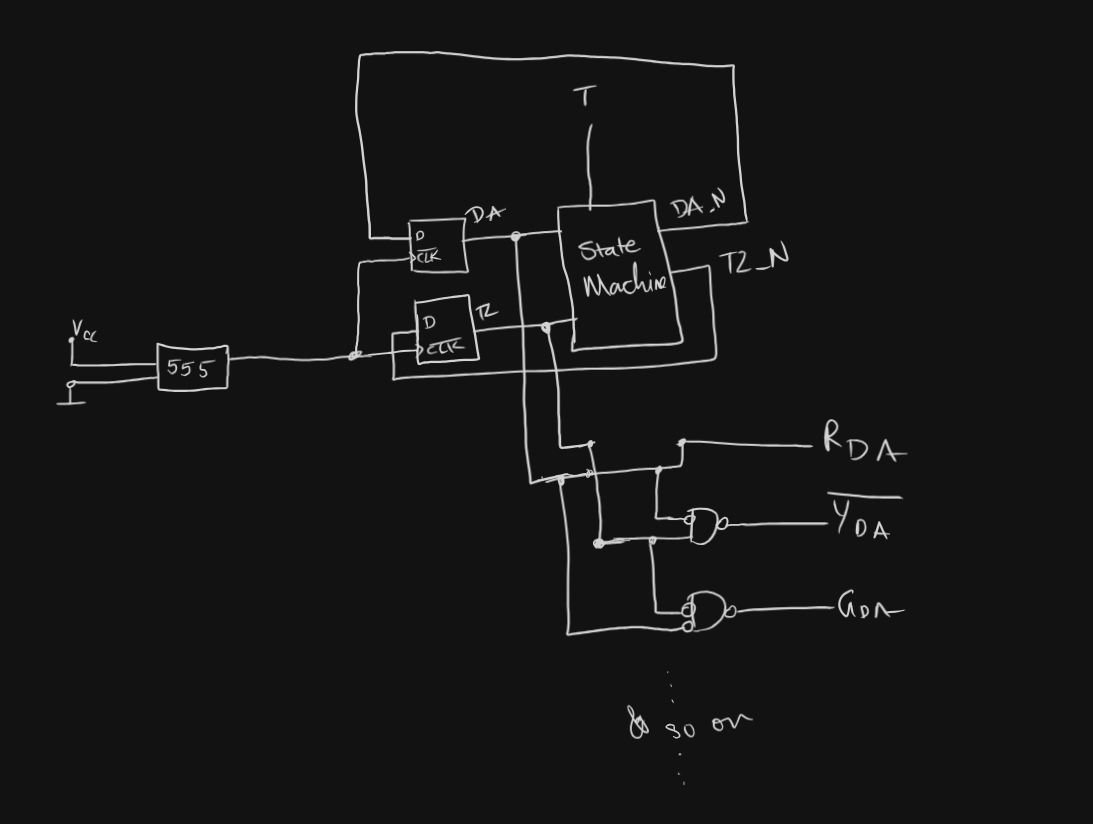 T
DA
DA_N
D
C̅L̅K̅
State
Machine
T2_N
T2
D
C̅L̅K̅
Vcc
555
R_DA
Y̅_D̅A̅
G_DA
& so on